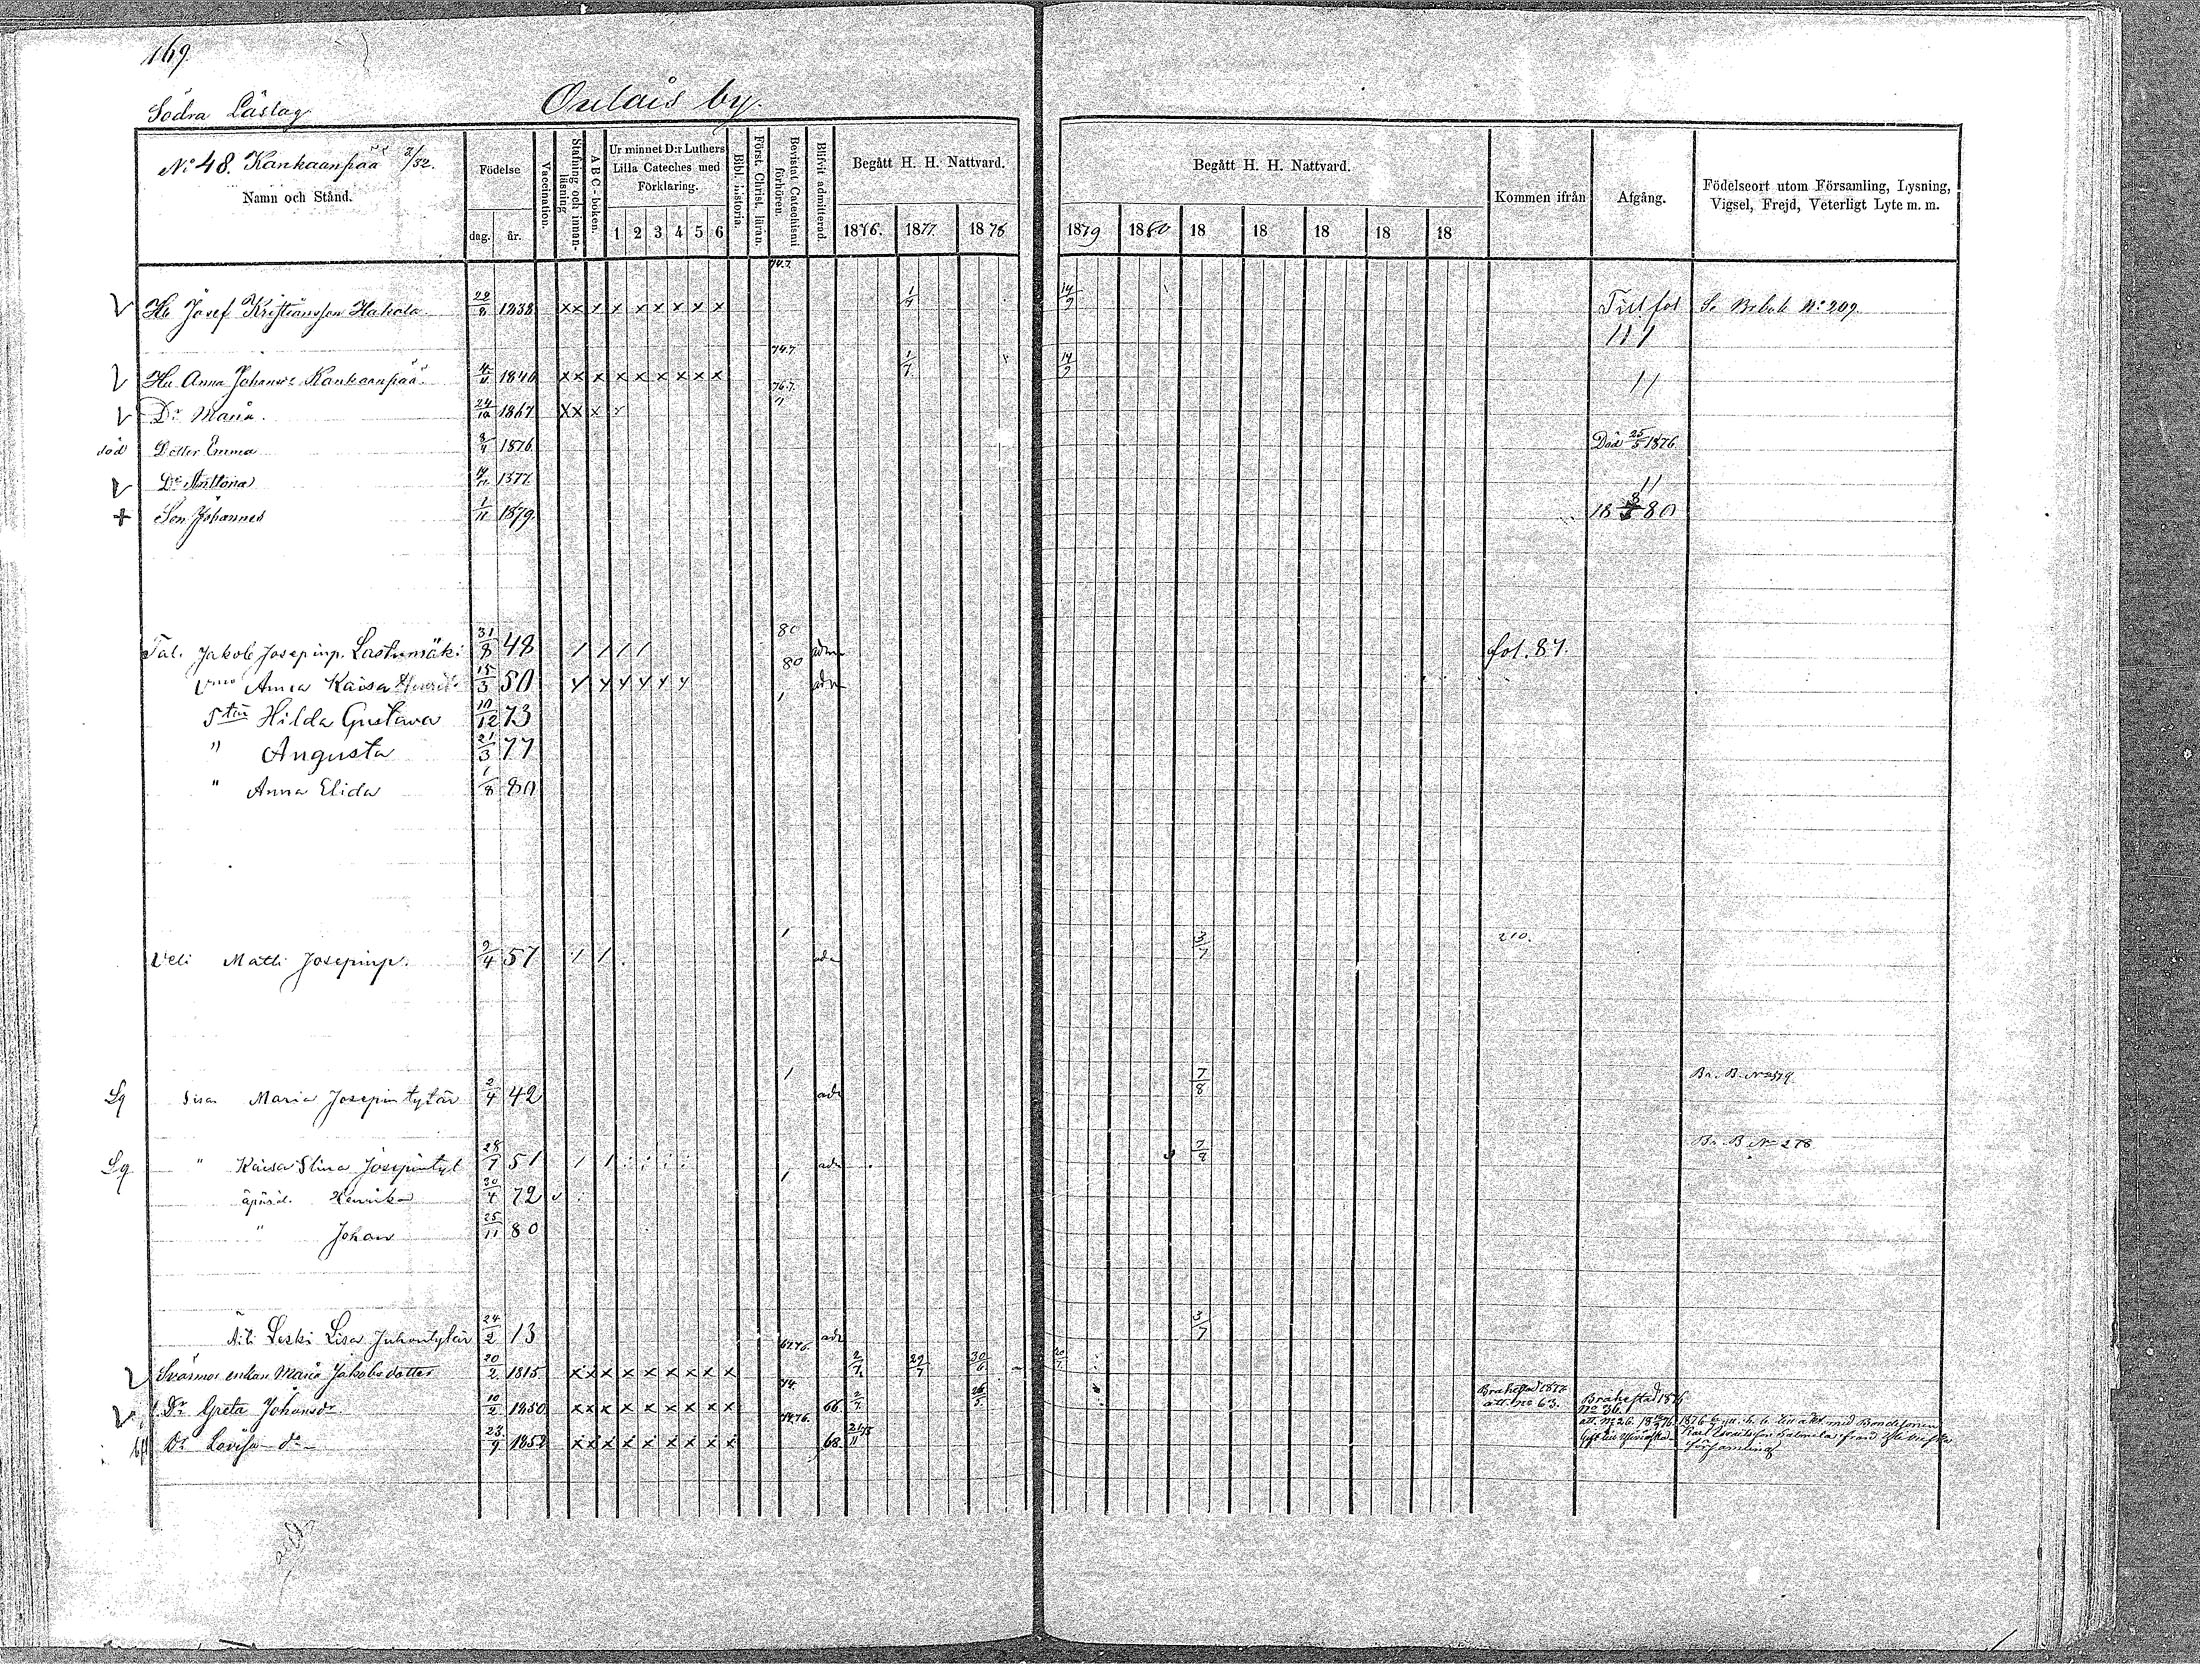 169.
Södra Läslag
Oulais by.
No 48. Kankaanpää 2/32.
Namn och Stånd.
Födelse
dag. år.
Vaccination.
Stafning och innanläsning
A B C-boken.
Ur minnet D:r Luthers Lilla Cateches med Förklaring.
1 2 3 4 5 6
Bibl. historia.
Först. Christ. läran.
Bevistat Catechismi förhören.
Blifvit admitterad.
Begått H. H. Nattvard.
1876. 1877. 1878
Begått H. H. Nattvard.
1879 1880 18 18 18 18 18
Kommen ifrån
Afgång.
Födelseort utom Församling, Lysning, Vigsel, Frejd, Veterligt Lyte m. m.
74.7.
Hb Josef Kristiansson Hakola 22/8 1838 x x x x x x x x x 1/7 14/9 Till fol 111 Se Brbok No: 209
74.7
Hu Anna Johansdr Kankaanpää 1840 x x x x x x x x x 1/7 14/9 11
76.7.
Dr Maria. 24/10 1867 x x x 11
död Dotter Emma 8/4 1876 Död 25/5 1876
Dr Anttona 1877 11
+ Son Johannes 1/11 1879. 18 8/8 80
Tal. Jakob Josepinp. Lastumäki 31/8 48 80 adm fol. 87.
Vmo Anna Kaisa 15/3 50 80 adm
Stär Hilda Gustava 10/12 73 1
" Augusta 21/3 77
" Anna Elida 1/8 80
Veli Matti Josepinp. 2/4 57 1 1 1 ad 3/7 210.
Lg Sisar Maria Josepintytär 2/4 42 1 adm 7/8 Br. B. No 279
Lg " Kaisa Stina Josepintyt 28/7 51 1 1 adm 7/8 Br. B No 278
äpärä. Henrik 30/4 72 1
" Johan 25/11 80
Äiti Leski Lisa Juhontytär 24/2 13 adm 3/7
Svärmor enkan Maria Jakobsdotter 20/2 1815 x x x x x x x x x 6276. 2/7 29/7 30/6 20/7
Dr Greta Johansdr 10/2 1850 x x x x x x x x x 74. 66 2/7 26/5 Brahestad 1877 att. no 63. Brahestad 1876 no 36.
Dr Lovisa dr 23/9 1852 x x x x x x x x x 7476. 68. att. no 26. 1876 med Bondesonen Karl församling